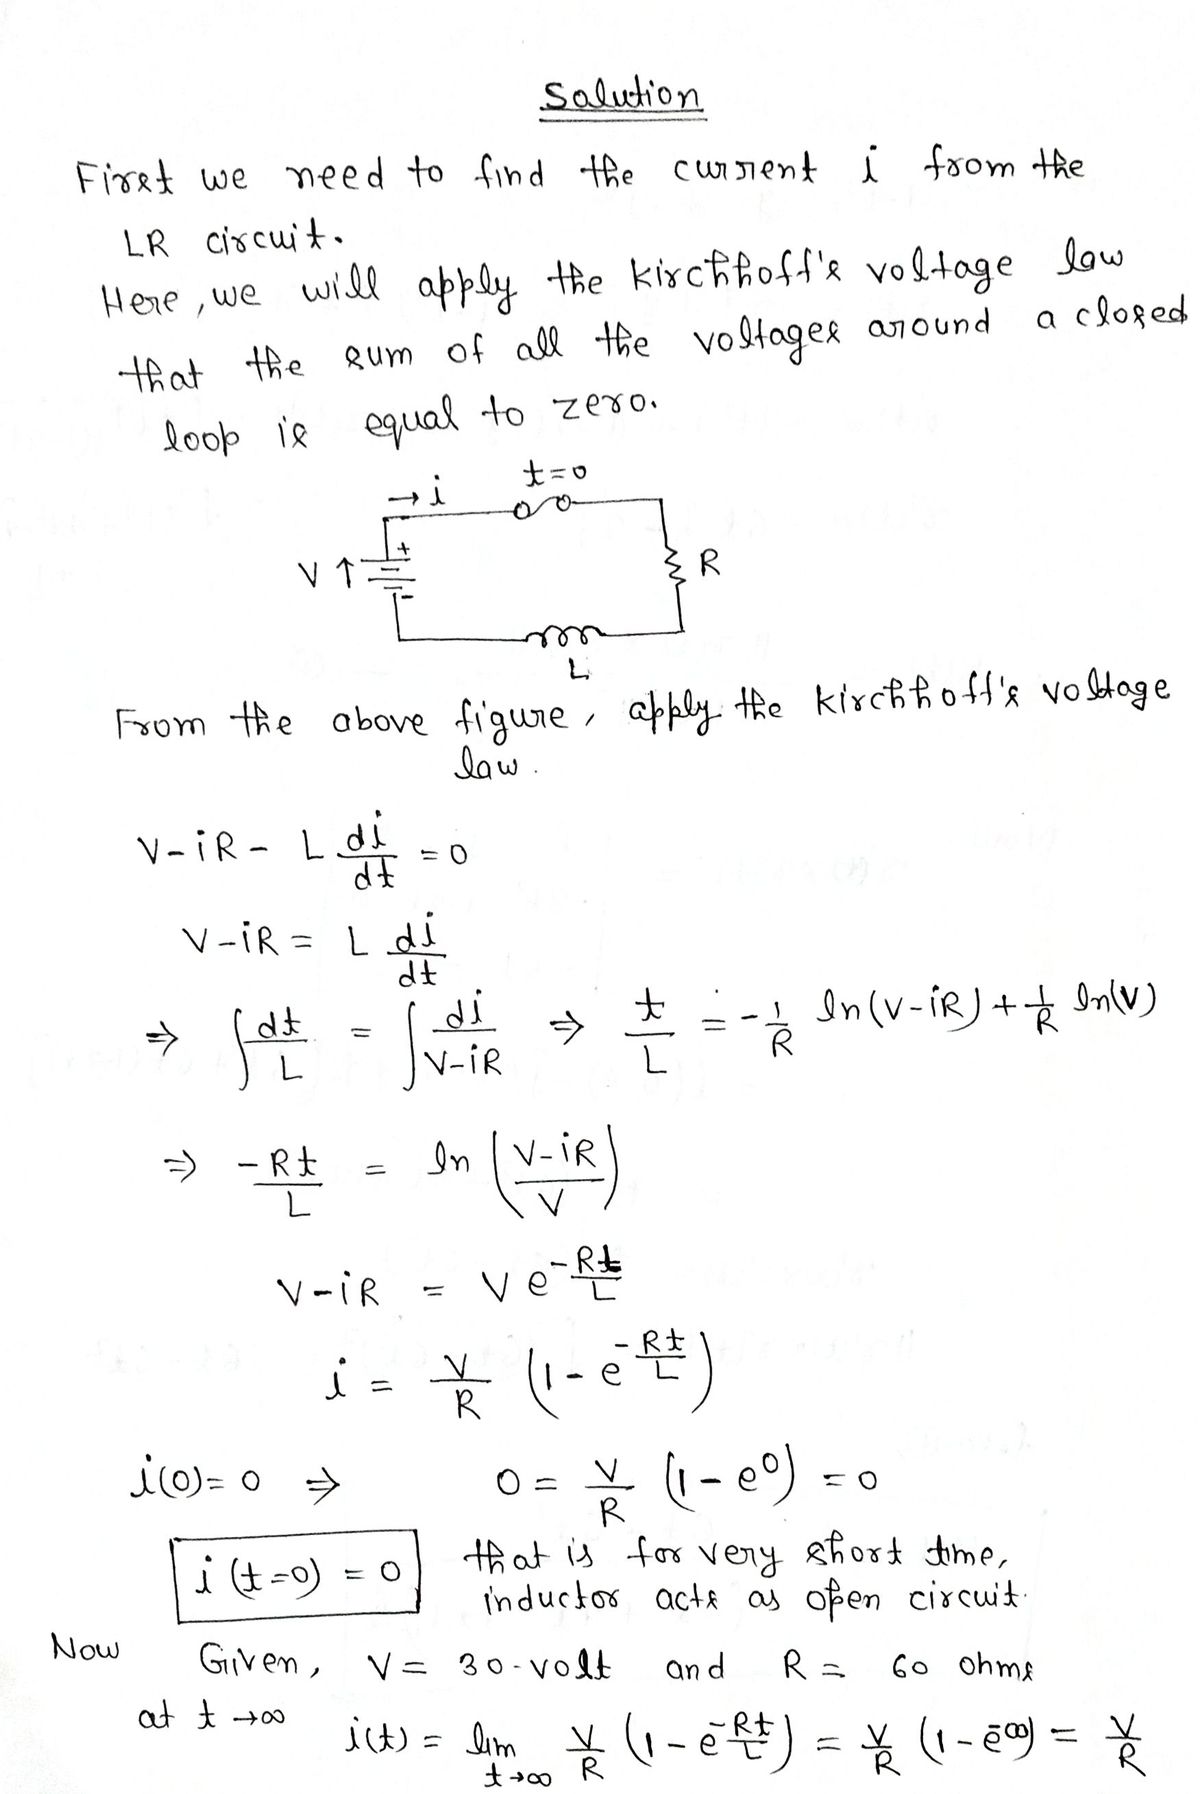 Solution
First we need to find the current i from the
LR circuit.
Here, we will apply the Kirchhoff's voltage law
that the sum of all the voltages around a closed
loop is equal to zero.
→ i t=0
V ↑ + - R
L
From the above figure, apply the Kirchhoff's voltage
law.
V-iR - L di/dt = 0
V-iR = L di/dt
⇒ ∫dt/L = ∫di/V-iR ⇒ t/L = -1/R ln(V-iR) + 1/R ln(V)
⇒ -Rt/L = ln (V-iR/V)
V-iR = V e^-Rt/L
i = V/R (1 - e^-Rt/L)
i(0) = 0 ⇒ 0 = V/R (1 - e^0) = 0
i (t=0) = 0 that is for very short time,
inductor acts as open circuit.
Now Given, V = 30-volt and R = 60 ohms
at t→∞ i(t) = lim t→∞ V/R (1 - e^-Rt/L) = V/R (1 - e^-∞) = V/R